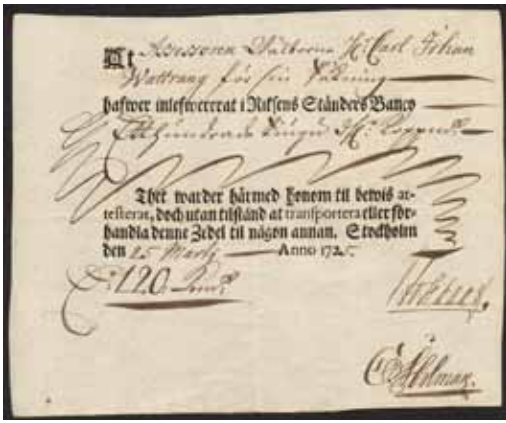 At Assessoren Wälborne Hr. Carl Johan
Wattrang för sin Räkning
hafwer inlefwerrat i Riksens Ständers Banco
Etthundrade Tiugu
Thet warder härmed honom til bewis at-
testerat, doch utan tilstånd at transportera eller för-
handla denne Zedel til någon annan. Stockholm
den 25 Martij Anno 172
120